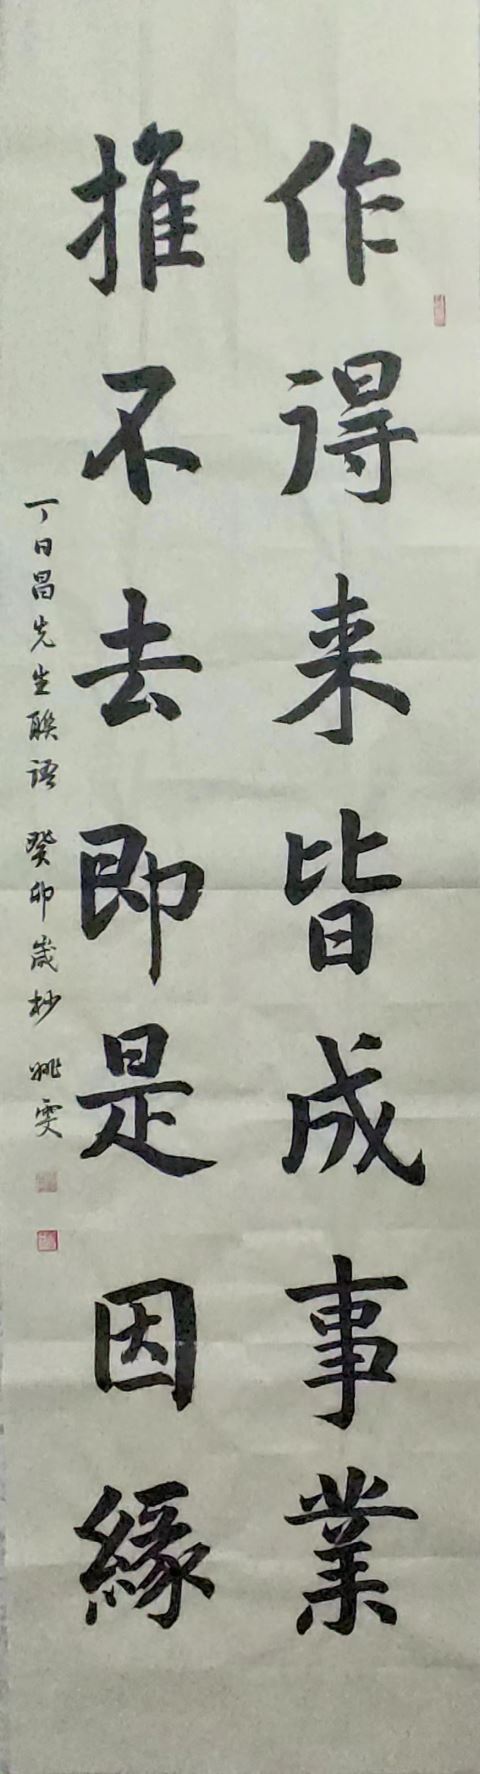 作得来皆成事業
推不去即是因緣
丁日昌先生聯語 癸卯歲杪 姚雯